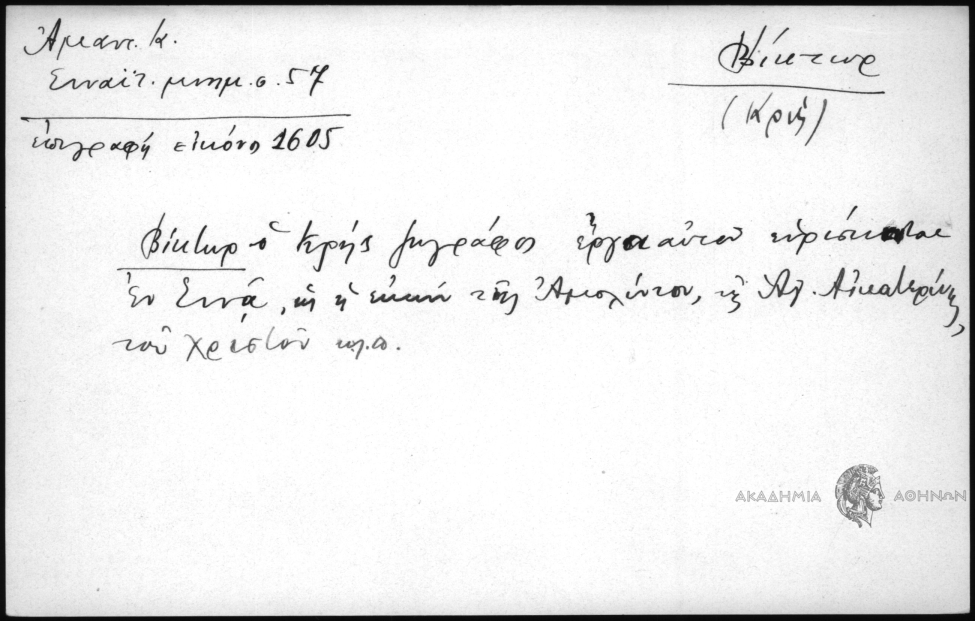 Ἀμαντ. Κ.
Σιναϊτ. μνημ. σ. 57
ἐπιγραφή εἰκόνος 1605
Βίκτωρ
(Κρής)
Βίκτωρ ὁ Κρής ζωγράφος ἔργα αὐτοῦ εὑρίσκονται
ἐν Σινᾷ, ὡς ἡ εἰκών τῆς Ἀμολύντου, τῆς Ἁγ. Αἰκατερίνης,
τοῦ Χριστοῦ κ.ἄ.
ΑΚΑΔΗΜΙΑ ΑΘΗΝΩΝ